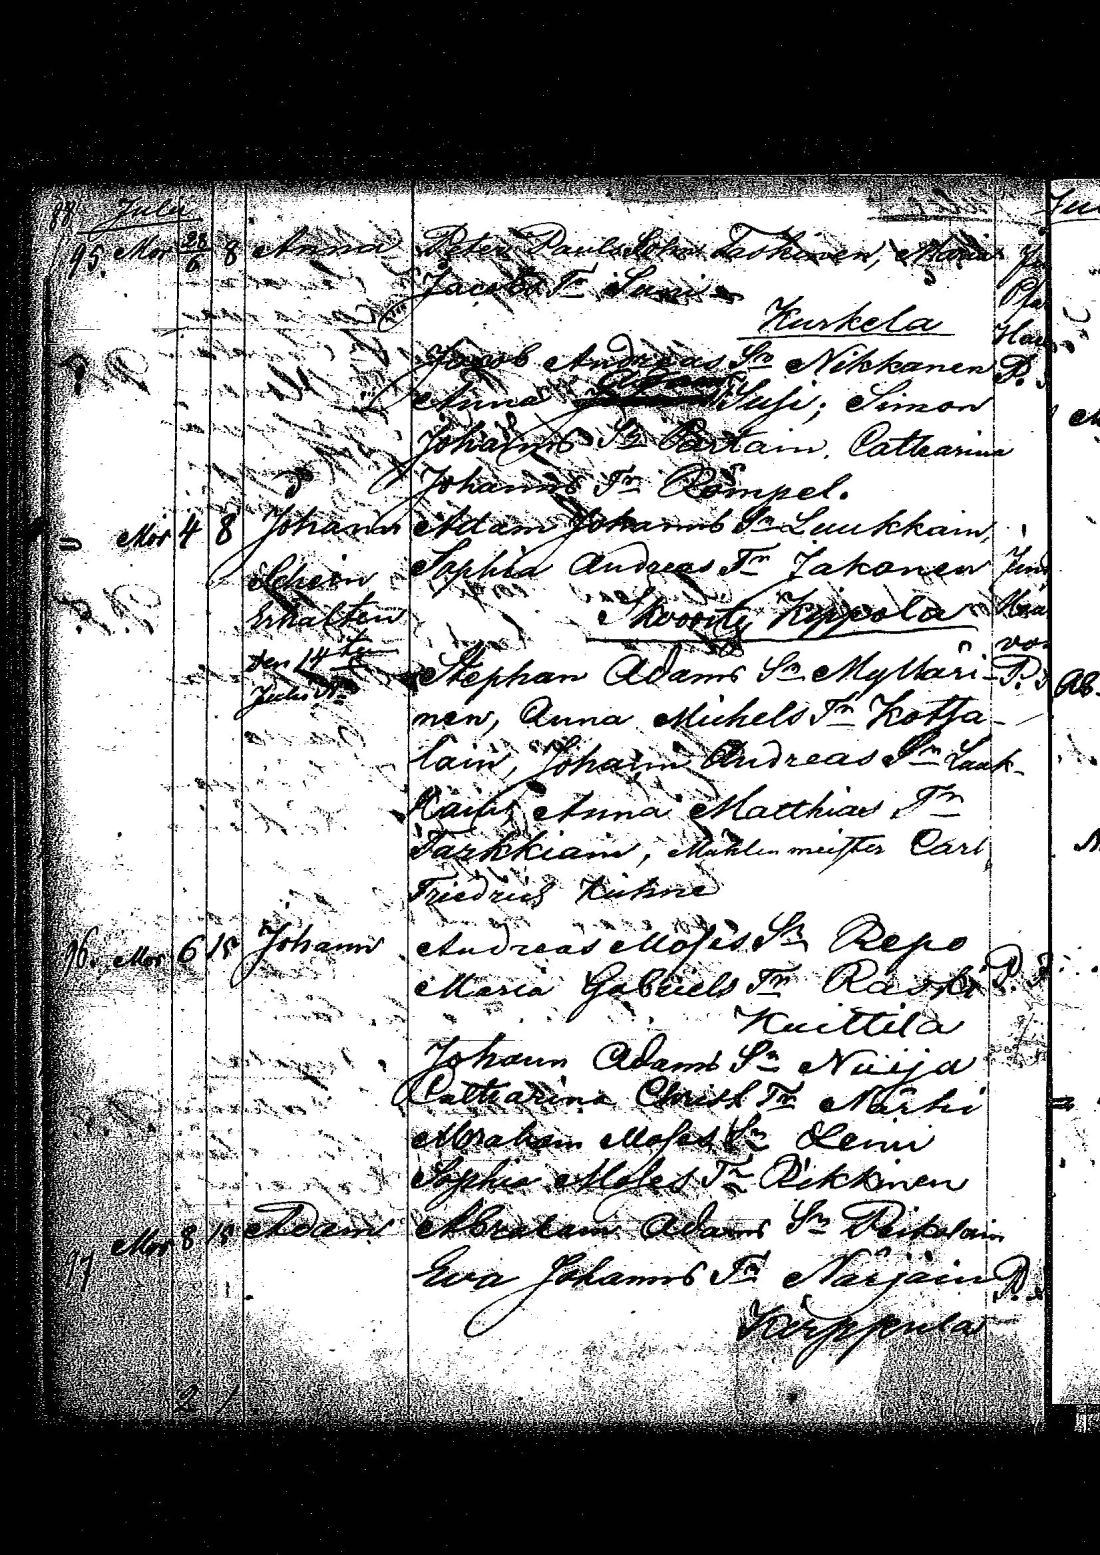 88. Juli
95. Mor 28/6 8 Anna Peter Pauls Sohn Taskinen, Maria
Jacobs Tr Susi
Kurkela
Jacob Andreas Sn Nikkanen P.
Anna Adams Susi; Simon
Johanns Sn Partain, Catharina
Johanns Tn Römpel.
= Mor 4 8 Johann Adam Johanns Sn Luukkain,
Schein Sophia Andreas Tn Jakonen
Erhalten Skvoritz Kippola
den 14ten Stephan Adams Sn Myllari- P.
Juli
nen, Anna Michels Tn Kotsa-
lain, Johann Andreas Sn Laak-
kain, Anna Matthias Tn
Tarkkiain, Mühlenmeister Carl
Friedrich Kühne
96. Mor 6 15 Johann Andreas Moses Sn Repo
Maria Gabriels Tn Raski P.
Kuittila
Johann Adams Sn Nüija
Catharina Christ Tn Närhi
Abraham Moses Sn Lemi
Sophia Moses Tn Rikkinen
97 Mor 8 15 Adam Abraham Adams Sn Peikolain
Eva Johanns Tn Närjäin P.
Kärppula
2 1